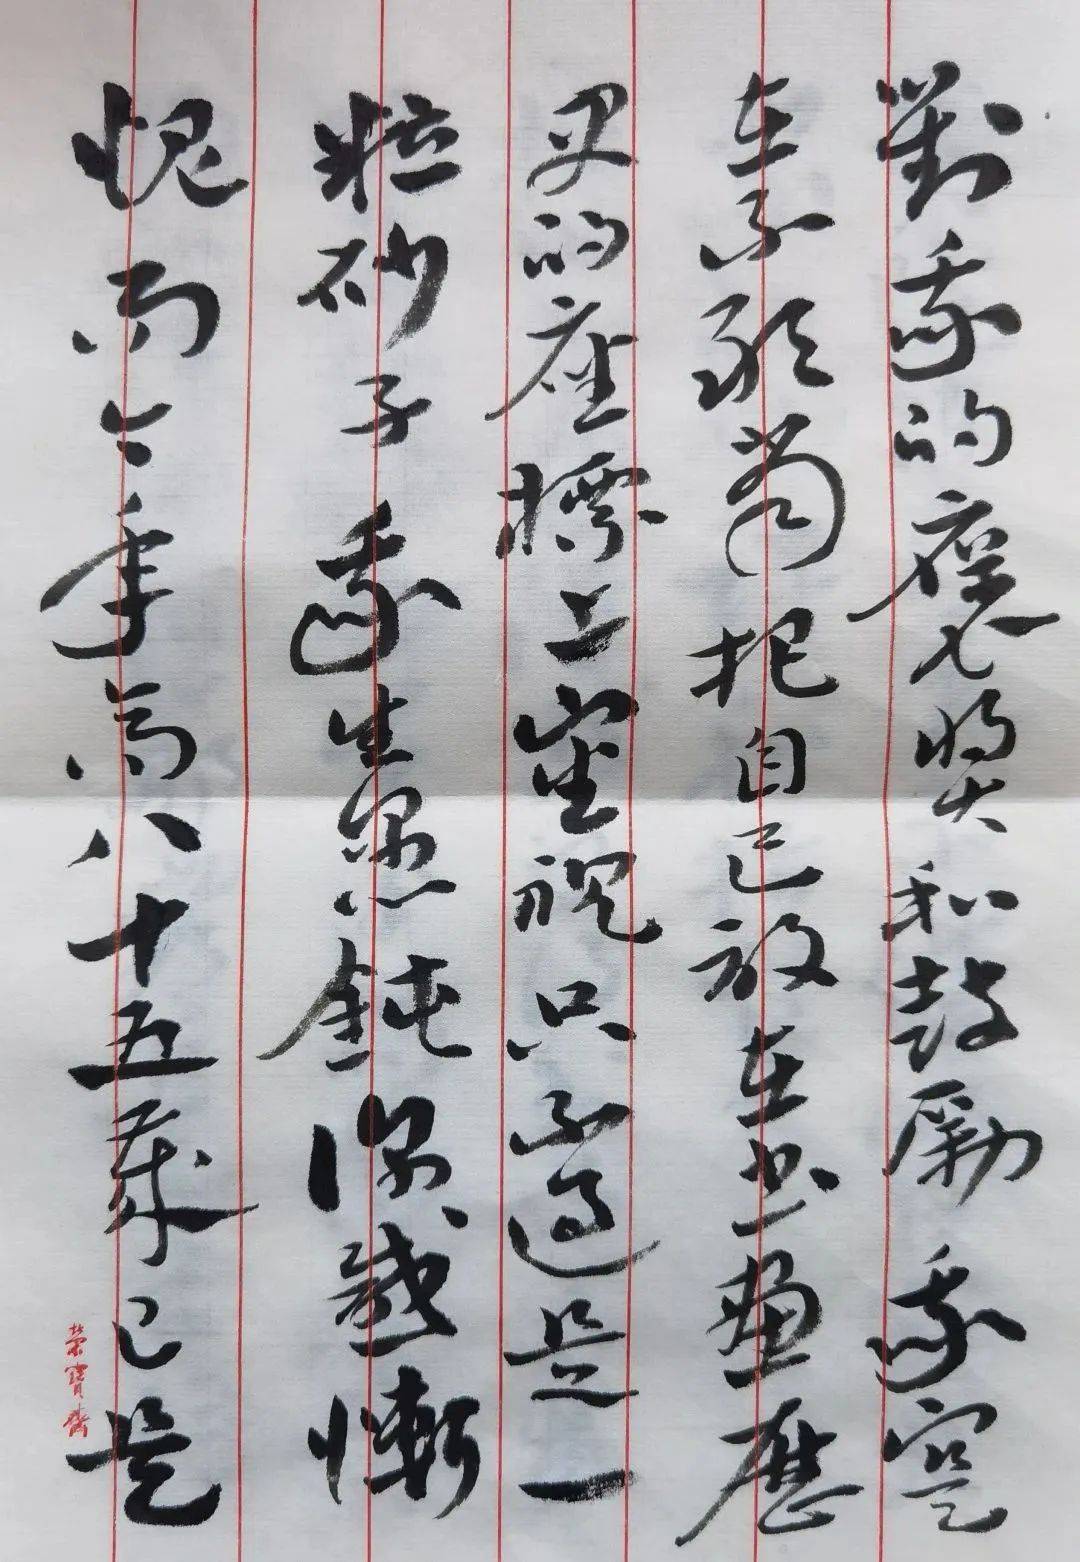 對我的褒獎和鼓勵我實
在不敢當把自己放在書畫歷
史的座標上審視只不過是一
粒砂子我生愚鈍深感慚
愧而今年高八十五歲已是
榮寶齋